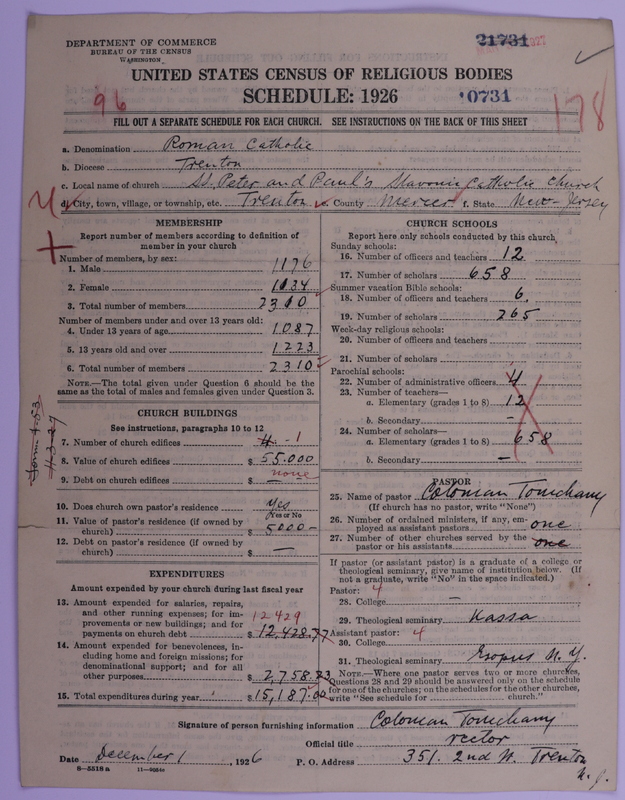 DEPARTMENT OF COMMERCE
BUREAU OF THE CENSUS
WASHINGTON
21731
UNITED STATES CENSUS OF RELIGIOUS BODIES
96
SCHEDULE: 1926
0731
178
FILL OUT A SEPARATE SCHEDULE FOR EACH CHURCH. SEE INSTRUCTIONS ON THE BACK OF THIS SHEET
a. Denomination Roman Catholic
b. Diocese Trenton
c. Local name of church SS. Peter and Paul's Slavonic Catholic Church
d. City, town, village, or township, etc. Trenton e. County Mercer f. State New-Jersey
MEMBERSHIP
Report number of members according to definition of
member in your church
Number of members, by sex:
1. Male 1176
2. Female 1134
3. Total number of members 2310
Number of members under and over 13 years old:
4. Under 13 years of age 1087
5. 13 years old and over 1223
6. Total number of members 2310
NOTE.—The total given under Question 6 should be the
same as the total of males and females given under Question 3.
CHURCH BUILDINGS
See instructions, paragraphs 10 to 12
7. Number of church edifices 4. - 1
8. Value of church edifices $ 55.000
9. Debt on church edifices $ — none
10. Does church own pastor's residence Yes
(Yes or No)
11. Value of pastor's residence (if owned by
church) $ 5000-
12. Debt on pastor's residence (if owned by
church) $ —
EXPENDITURES
Amount expended by your church during last fiscal year
13. Amount expended for salaries, repairs,
and other running expenses; for im-
provements or new buildings; and for
payments on church debt 12429 $ 12,428.77
14. Amount expended for benevolences, in-
cluding home and foreign missions; for
denominational support; and for all
other purposes $ 2,758.23
15. Total expenditures during year $ 15,187.00
CHURCH SCHOOLS
Report here only schools conducted by this church
Sunday schools:
16. Number of officers and teachers 12
17. Number of scholars 658
Summer vacation Bible schools:
18. Number of officers and teachers 6.
19. Number of scholars 265
Week-day religious schools:
20. Number of officers and teachers
21. Number of scholars
Parochial schools:
22. Number of administrative officers 4
23. Number of teachers—
a. Elementary (grades 1 to 8) 12
b. Secondary —
24. Number of scholars—
a. Elementary (grades 1 to 8) 658
b. Secondary —
PASTOR
25. Name of pastor Coloman Tomchany
(If church has no pastor, write "None")
26. Number of ordained ministers, if any, em-
ployed as assistant pastors one
27. Number of other churches served by the
pastor or his assistants one
If pastor (or assistant pastor) is a graduate of a college or
theological seminary, give name of institution below. (If
not a graduate, write "No" in the space indicated.)
Pastor: 4
28. College —
29. Theological seminary Kassa
Assistant pastor: 4
30. College
31. Theological seminary Esopus N.Y.
NOTE.—Where one pastor serves two or more churches,
Questions 28 and 29 should be answered only on the schedule
for one of the churches; on the schedules for the other churches,
write "See schedule for church."
Signature of person furnishing information Coloman Tomchany
Official title rector
Date December 1, 1926 P. O. Address 351. 2nd St. Trenton
N. J.
8—5518 a